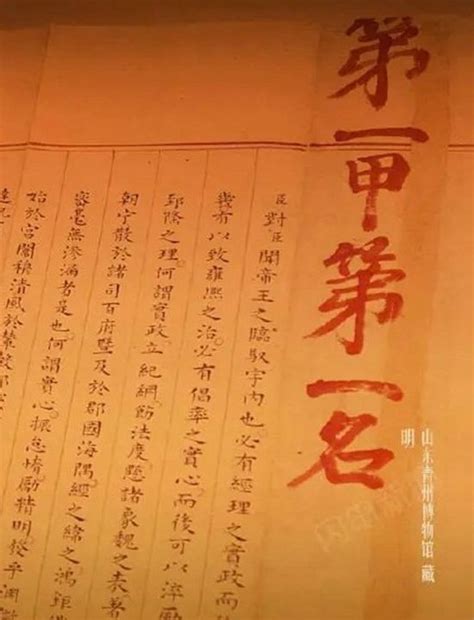 第一甲第一名
臣對臣聞帝王之臨馭宇內也必有經理之實政而
幾有以致雍熙之治必有倡率之實心而後可以淬勵
郅隆之理何謂實政立紀綱飭法度懸諸象魏之表著
朝宁散於諸司百府暨及於郡國海隅經之緯之鴻鉅
審毫無滲漏者是也何謂實心振怠惰勵精明發乎淵
始於宮闈穆清風於輦轂
明
山东青州博物馆 藏